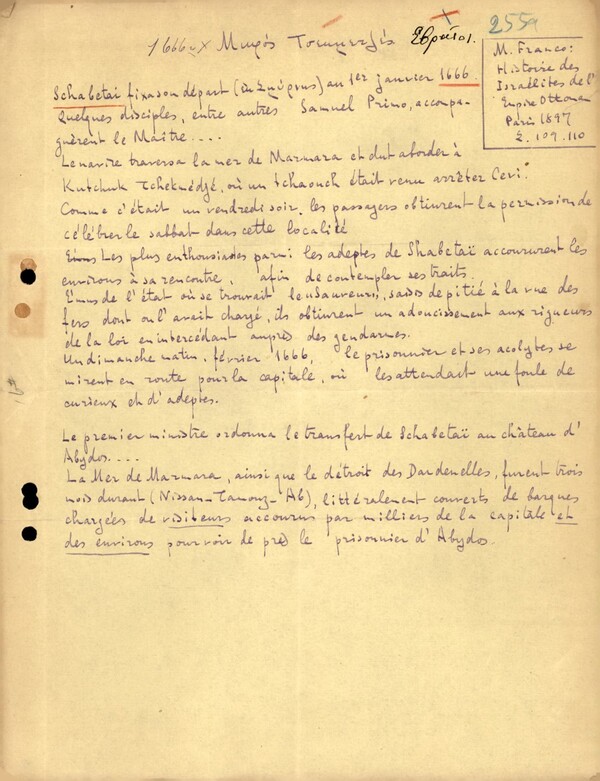 255α
1666 μ.Χ Μικρός Τσεκμετζές Εβραίοι.
M. Franco:
Histoire des
Israélites de l'
Empire Ottoman
Paris 1897
Σ. 109-110
Schabetaï fixa son départ (ἐκ Σμύρνης) au 1er janvier 1666.
Quelques disciples, entre autres Samuel Primo, accompa-
gnèrent le Maître....
Le navire traversa la mer de Marmara et dut aborder à
Kutchuk Tchekmédjé, où un tchaouch était venu arrêter Cevi.
Comme c'était un vendredi soir, les passagers obtinrent la permission de
célébrer le sabbat dans cette localité
Les plus enthousiastes parmi les adeptes de Shabetaï accoururent les
environs à sa rencontre, afin de contempler ses traits.
Émus de l'état où se trouvait le "Sauveur", saisis de pitié à la vue des
fers dont on l'avait chargé, ils obtinrent un adoucissement aux rigueurs
de la loi en intercédant auprès des gendarmes.
Un dimanche matin, février 1666, le prisonnier et ses acolytes se
mirent en route pour la capitale, où les attendait une foule de
curieux et d'adeptes.
Le premier ministre ordonna le transfert de Schabetaï au château d'
Abydos....
La Mer de Marmara, ainsi que le détroit des Dardenelles, furent trois
mois durant (Nissan-Tamouz-Ab), littéralement couverts de barques
chargées de visiteurs accourus par milliers de la capitale et
des environs pour voir de près le prisonnier d'Abydos.